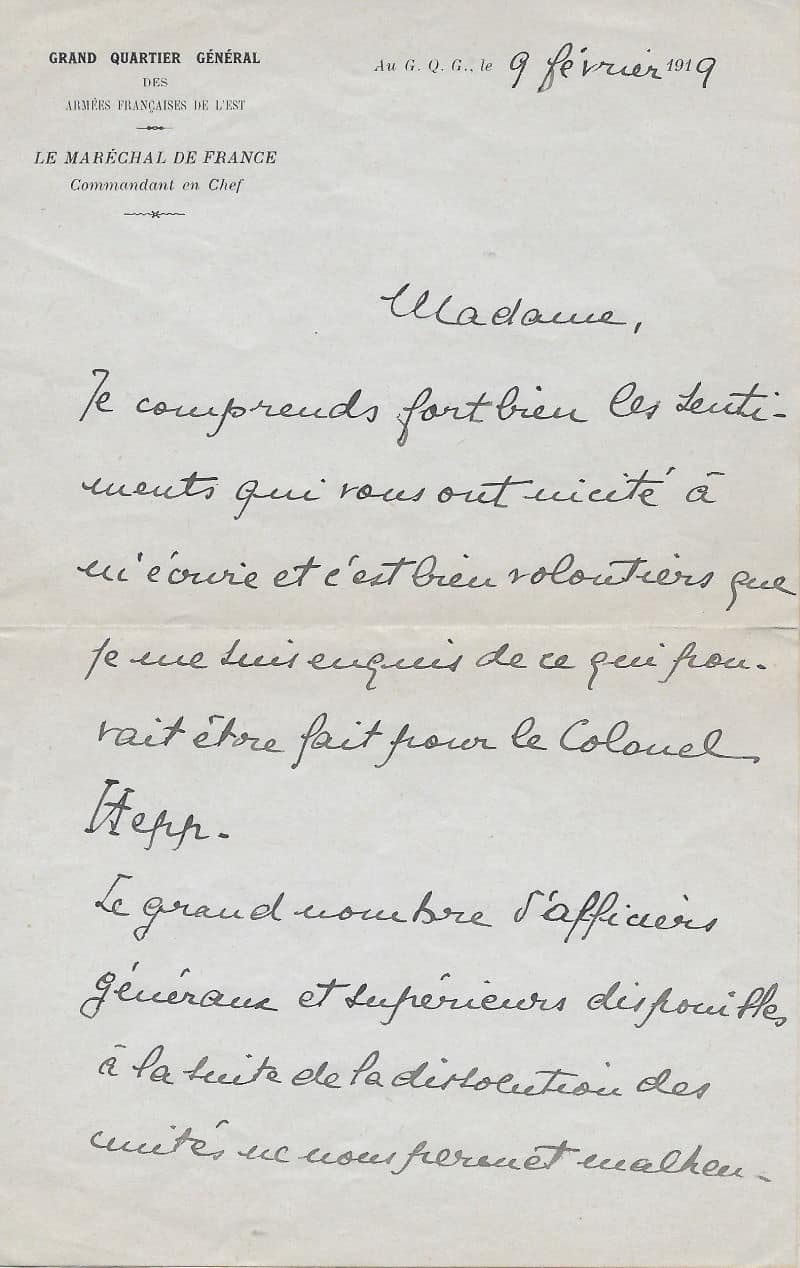 GRAND QUARTIER GÉNÉRAL
DES
ARMÉES FRANÇAISES DE L'EST
LE MARÉCHAL DE FRANCE
Commandant en Chef
Au G. Q. G., le 9 février 1919
Madame,
Je comprends fort bien les senti-
ments qui vous ont incité à
m'écrire et c'est bien volontiers que
je me suis enquis de ce qui pou-
vait être fait pour le Colonel
Hepp.
Le grand nombre d'officiers
généraux et supérieurs disponibles
à la suite de la dissolution des
unités ne nous permet malheu-